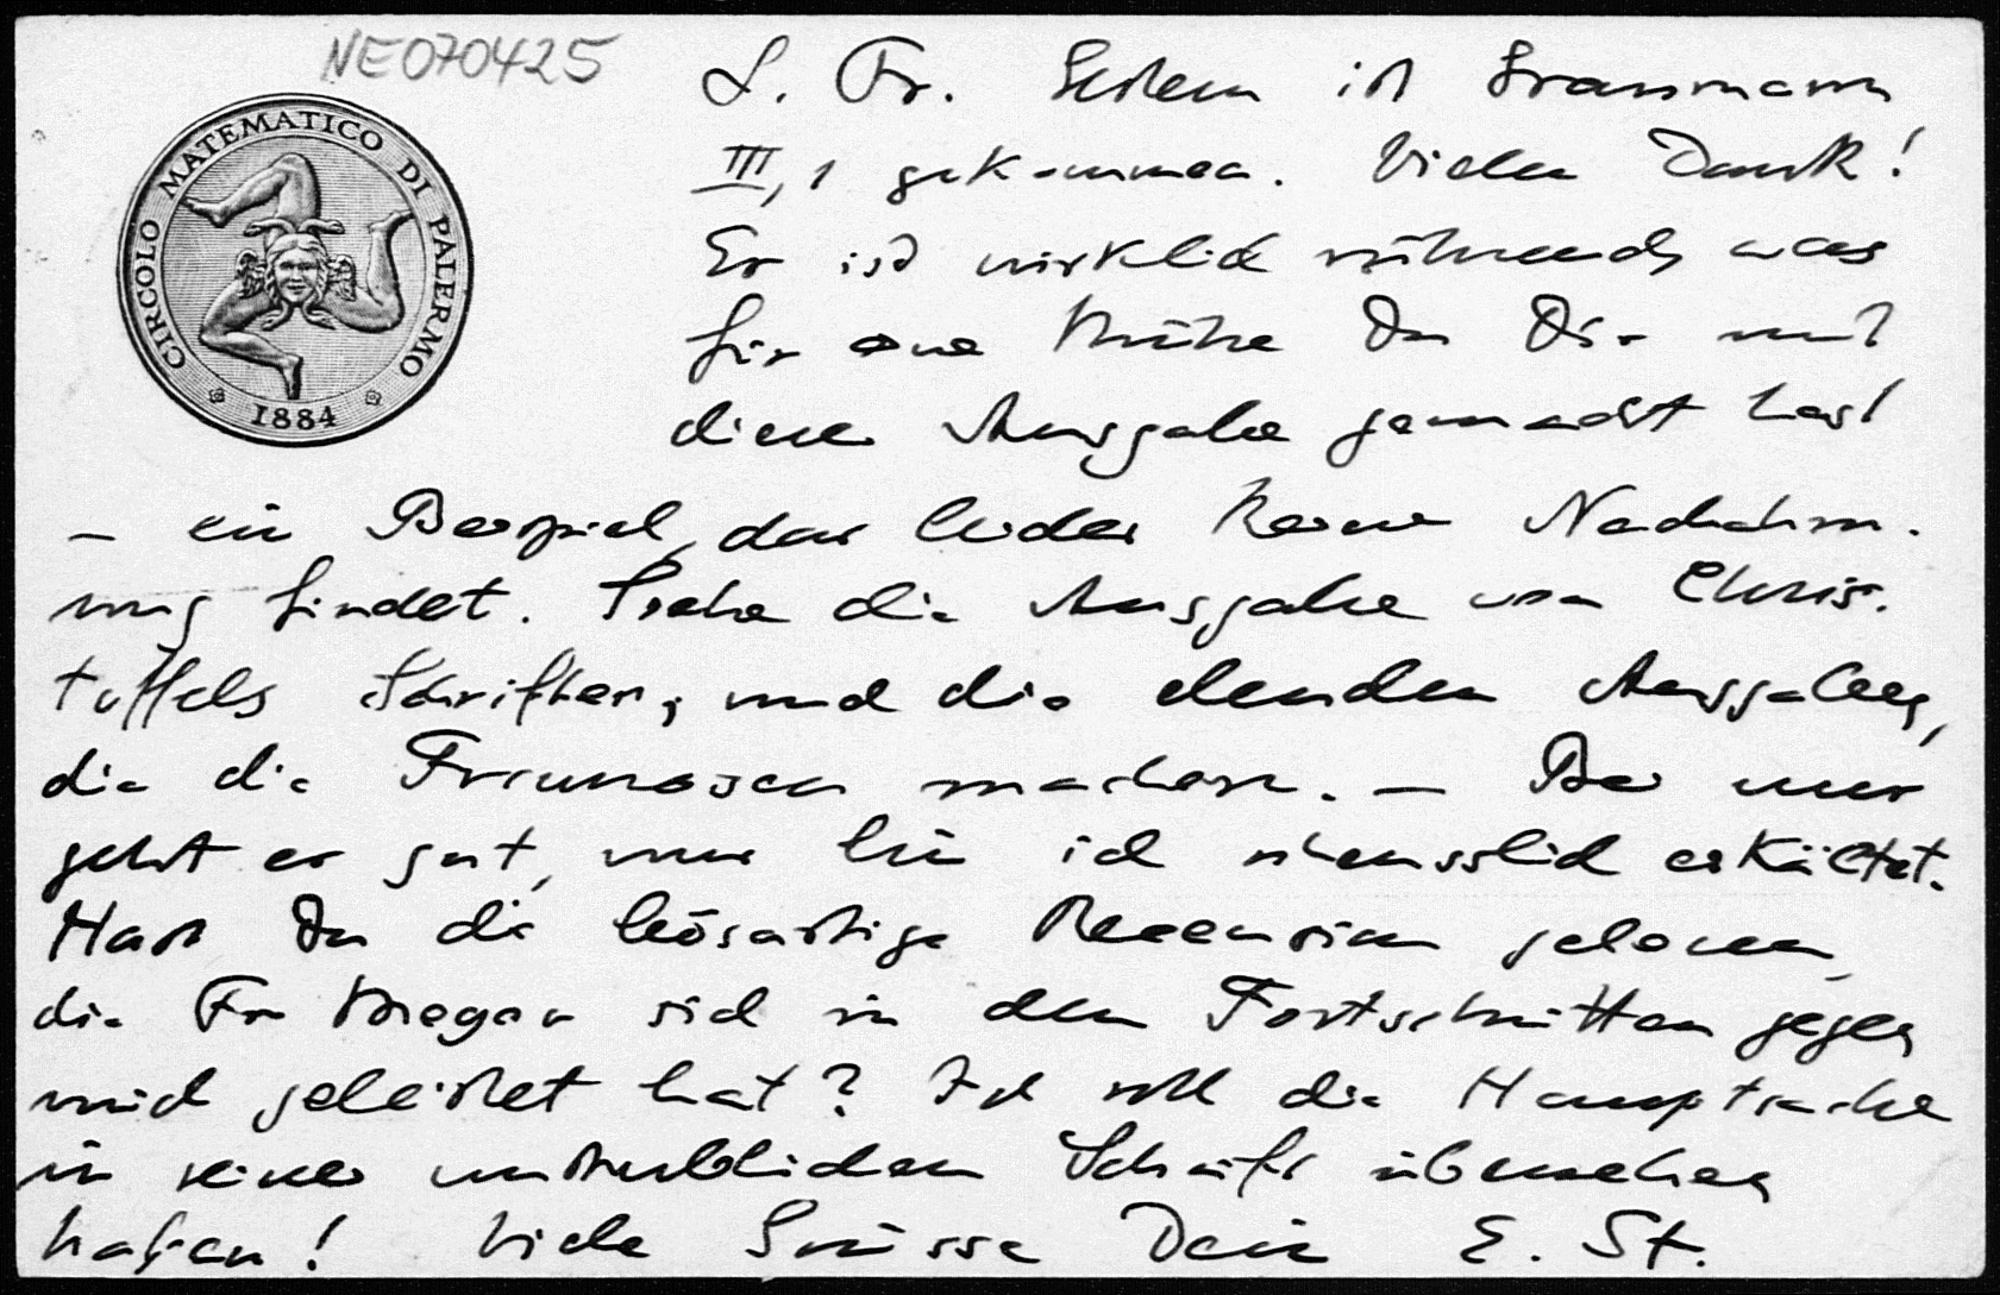 NE070425
CIRCOLO MATEMATICO DI PALERMO
1884
L. Fr. Gestern ist Grassmann
III, 1 gekommen. Vielen Dank!
Es ist wirklich rührend, was
für eine Mühe Du Dir mit
dieser Ausgabe gemacht hast
– ein Beispiel, das leider keine Nachahm-
ung findet. Siehe die Ausgabe von Chris-
toffels Schriften, und die elenden Ausgaben,
die die Franzosen machen. – Bei mir
geht es gut, nur bin ich scheusslich erkältet.
Hast Du die bösartige Recension gelesen,
die Fr Meyer sich in den Fortschritten gegen
mich geleistet hat? Ich soll die Hauptsache
in seiner unsterblichen Schrift übersehen
haben! Viele Grüsse Dein E. St.